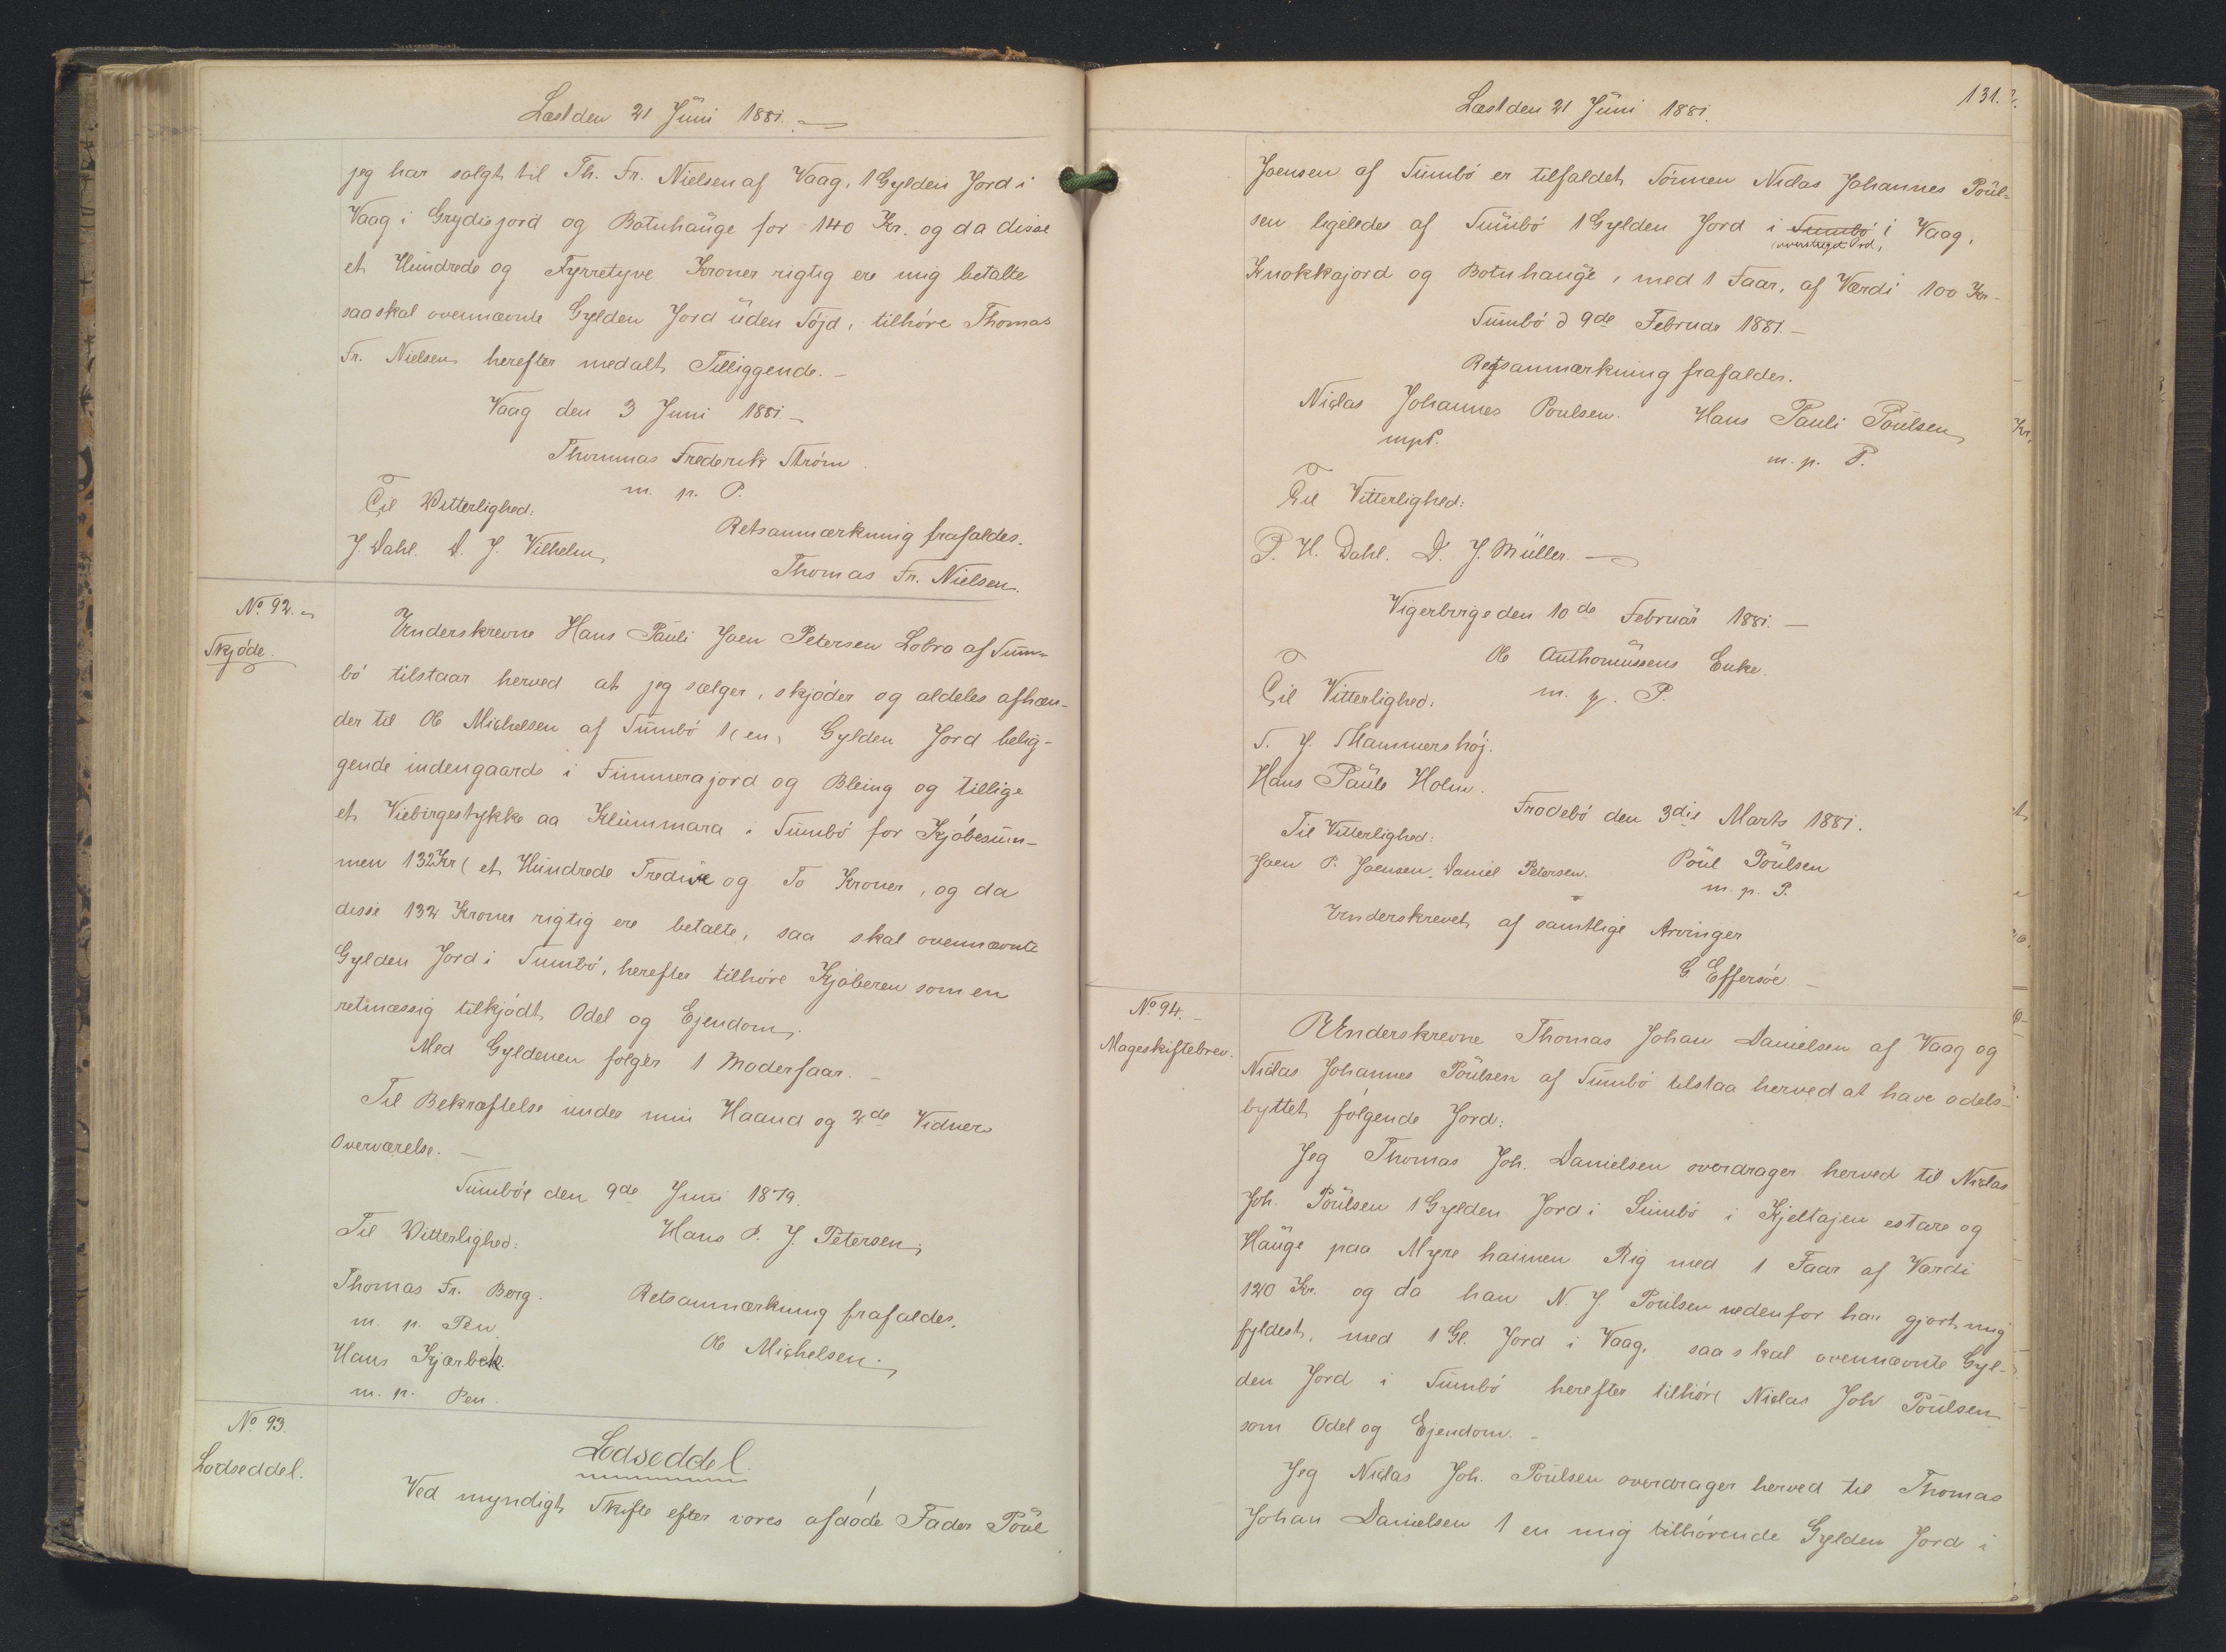 Læst den 21 Jŭni 1881.
jeg har solgt til Th. Fr. Nielsen af Vaag, 1 Gylden Jord i
Vaag i Grydisjord og Botnhaŭge for 140 Kr. og da disse
et Hŭndrede og Fyrretyve Kroner rigtig ere mig betalte
saa skal ovennævnte Gylden Jord ŭden Tøjd, tilhøre Thomas
Fr. Nielsen herefter med alt Tilliggende. –
Vaag den 3 Juni 1881. –
Thommas Frederik Strøm.
m. p. P.
Til Vitterlighed:
Retsanmærkning frafaldes.
J. Dahl. D. J. Vilhelm,
Thomas Fr. Nielsen.
No. 92.
Skjøde.
Underskrevne Hans Paŭli Joen Petersen Lobra af Sŭm-
bø tilstaar herved at jeg sælger, skjøder og aldeles afhæn-
der til Ole Michelsen af Sŭmbø 1 (en) Gylden Jord belig-
gende indengaards i Fimmerajord og Bleing og tillige
et Viebirgestykke aa Klŭmmara i Sŭmbø for Kjøbesŭm-
men 132 Kr ( et Hŭndrede Tredive og To Kroner, og da
disse 132 Kroner rigtig ere betalte, saa skal ovennævnte
Gylden Jord i Sumbø, herefter tilhøre Kjøberen som en
retmæssig tilkjødt Odel og Ejendom,
Med Gyldenen følger 1 Moderfaar. –
Til Bekræftelse under min Haand og 2de Vidners
Overværelse. –
Sŭmbøe den 9de Juni 1879.
Til Vitterlighed:
Hans P. J. Petersen,
Thomas Fr. Berg.
m. p. Pen
Retsanmærkning frafaldes.
Hans Kjærbek.
m. p. Pen.
Ole Michelsen.
No. 93.
Lodseddel.
Lodseddel.
Ved myndigt Skifte efter vores afdøde Fader Poŭl
131.
Læst den 21 Jŭni 1881.
Joensen af Sŭmbø er tilfaldet Sønnen Niclas Johannes Poŭl-
sen ligeledes af Sŭmbø 1 Gylden Jord i Sumbø i Vaag,
(overstreget Ord)
Knokkajord og Botnhauge, med 1 Faar, af Værdi 100 Kr.
Sŭmbø d 9de Februar 1881. –
Retsanmærkning frafaldes.
Niclas Johannes Poulsen. Hans Pauli Poŭlsen
mpP.
m. p. P.
Til Vitterlighed:
P. H. Dahl. D. J. Müller. –
Vigerbirge den 10de Februar 1881. –
Ole Authoniŭssens Enke.
Til Vitterlighed:
m. p. P.
Hans Paŭle Holm.
Frodebø den 3die Marts 1881.
Til Vitterlighed:
Joen P. Joensen. Daniel Petersen.
Poŭl Poŭlsen
m. p. P.
Underskrevet af samtlige Arvinger
G. Effersøe. –
No. 94. –
Mageskiftebrev.
Underskrevne Thomas Johan Danielsen af Vaag og
Niclas Johannes Poŭlsen af Sŭmbø tilstaa herved at have odels-
byttet følgende Jord:
Jeg Thomas Joh. Danielsen overdrager herved til Niclas
Joh. Poŭlsen 1 Gylden Jord i Sŭmbø i Kjeltajen estare og
Haŭge paa Myre haimen Rig med 1 Faar af Værdi
120 Kr. og da han N. J. Poŭlsen nedenfor har gjort mig
fyldest, med 1 Gl. Jord i Vaag, saa skal ovennævnte Gyl-
den Jord i Sŭmbø herefter tilhøre Niclas Joh Poŭlsen
som Odel og Ejendom. –
Jeg Niclas Joh. Poŭlsen overdrager herved til Thomas
Johan Danielsen 1 en mig tilhørende Gylden Jord i